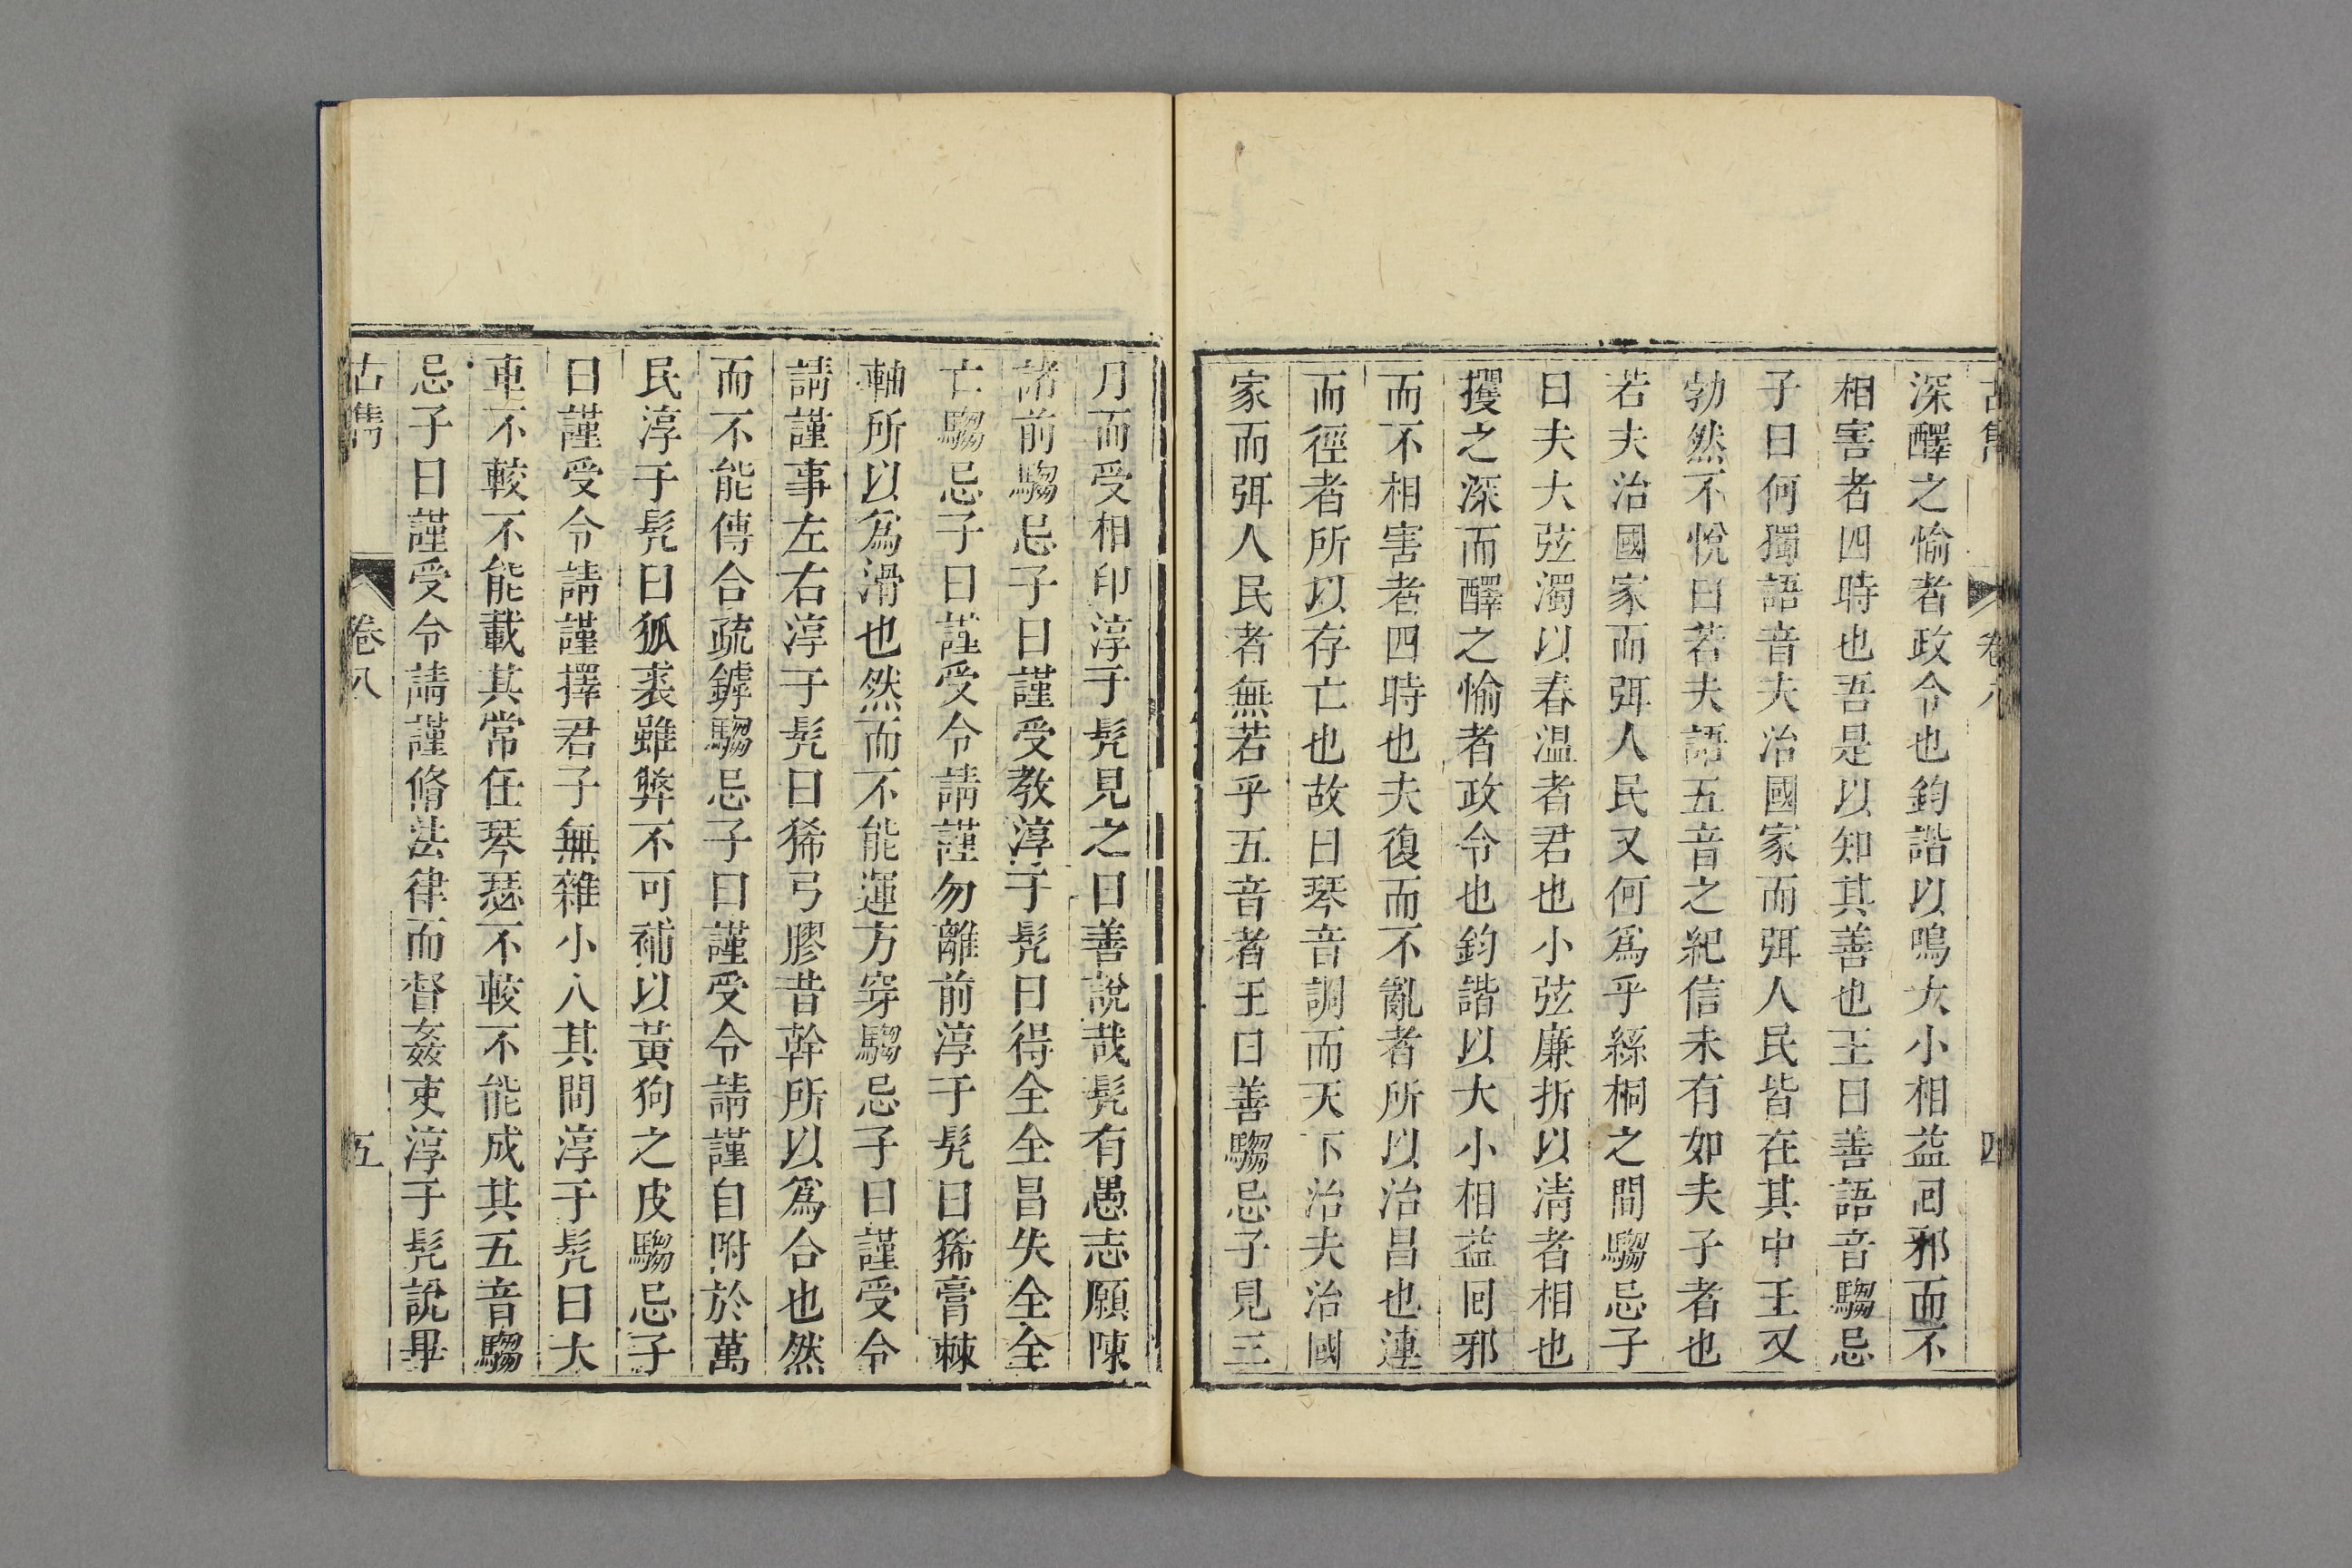 古雋 卷八 四
深醳之愉者政令也鈞諧以鳴大小相益囘邪而不
相害者四時也吾是以知其善也王曰善語音騶忌
子曰何獨語音夫治國家而弭人民皆在其中王又
勃然不悅曰若夫語五音之紀信未有如夫子者也
若夫治國家而弭人民又何爲乎絲桐之間騶忌子
曰夫大弦濁以春温者君也小弦廉折以清者相也
攫之深而醳之愉者政令也鈞諧以大小相益囘邪
而不相害者四時也夫復而不亂者所以治昌也連
而徑者所以存亡也故曰琴音調而天下治夫治國
家而弭人民者無若乎五音者王曰善騶忌子見三
月而受相印淳于髠見之曰善說哉髠有愚志願陳
諸前騶忌子曰謹受教淳于髠曰得全全昌失全全
亡騶忌子曰謹受令請謹勿離前淳于髠曰狶膏棘
軸所以爲滑也然而不能運方穿騶忌子曰謹受令
請謹事左右淳于髠曰狶弓膠昔幹所以爲合也然
而不能傅合疏罅騶忌子曰謹受令請謹自附於萬
民淳于髠曰狐裘雖弊不可補以黃狗之皮騶忌子
曰謹受令請謹擇君子無雜小人其間淳于髠曰大
車不較不能載其常任琴瑟不較不能成其五音騶
忌子曰謹受令請謹脩法律而督姦吏淳于髠說畢
古雋 卷八 五